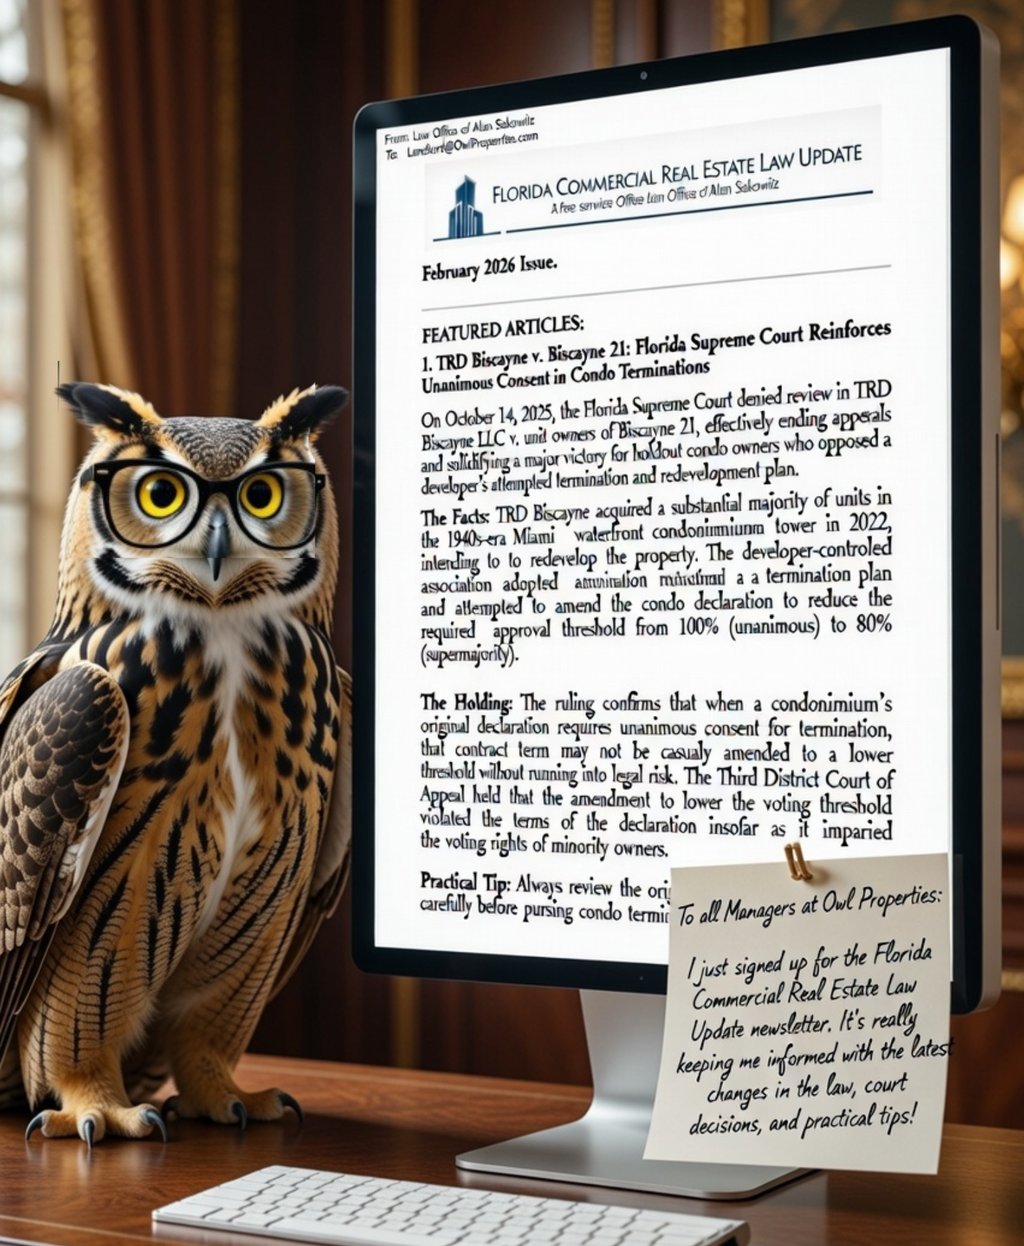 From: Law Office of Alan Sakowitz
To: Landlord@OwlProperties.com
FLORIDA COMMERCIAL REAL ESTATE LAW UPDATE
A free service Office Law Office of Alan Sakowitz
February 2026 Issue.
FEATURED ARTICLES:
1. TRD Biscayne v. Biscayne 21: Florida Supreme Court Reinforces
Unanimous Consent in Condo Terminations
On October 14, 2025, the Florida Supreme Court denied review in TRD
Biscayne LLC v, unit owners of Biscayne 21, effectively ending appeals
and solidifying a major victory for holdout condo owners who opposed a
developer's attempted termination and redevelopment plan.
The Facts: TRD Biscayne acquired a substantial majority of units in
the 1940s-era Miami waterfront condonimnium tower in 2022,
intending to to redevelop the property. The developer-controled
association adopted a a termination plan
and attempted to amend the condo declaration to reduce the
required approval threshold from 100% (unanimous) to 80%
(supermajority).
The Holding: The ruling confirms that when a condonimium's
original declaration requires unanimous consent for termination,
that contract term may not be casualy amended to a lower
threshold without running into legal risk. The Third District Court of
Appeal held that the amendment to lower the voting threshold
violated the terms of the declaration insofar as it imparied
the voting rights of minority owners.
Practical Tip: Always review the ori
carefully before pursing condo termi
To all Managers at Owl Properties:
I just signed up for the Florida
Commercial Real Estate Law
Update newsletter. It's really
keeping me informed with the latest
changes in the law, court
decisions, and practical tips!